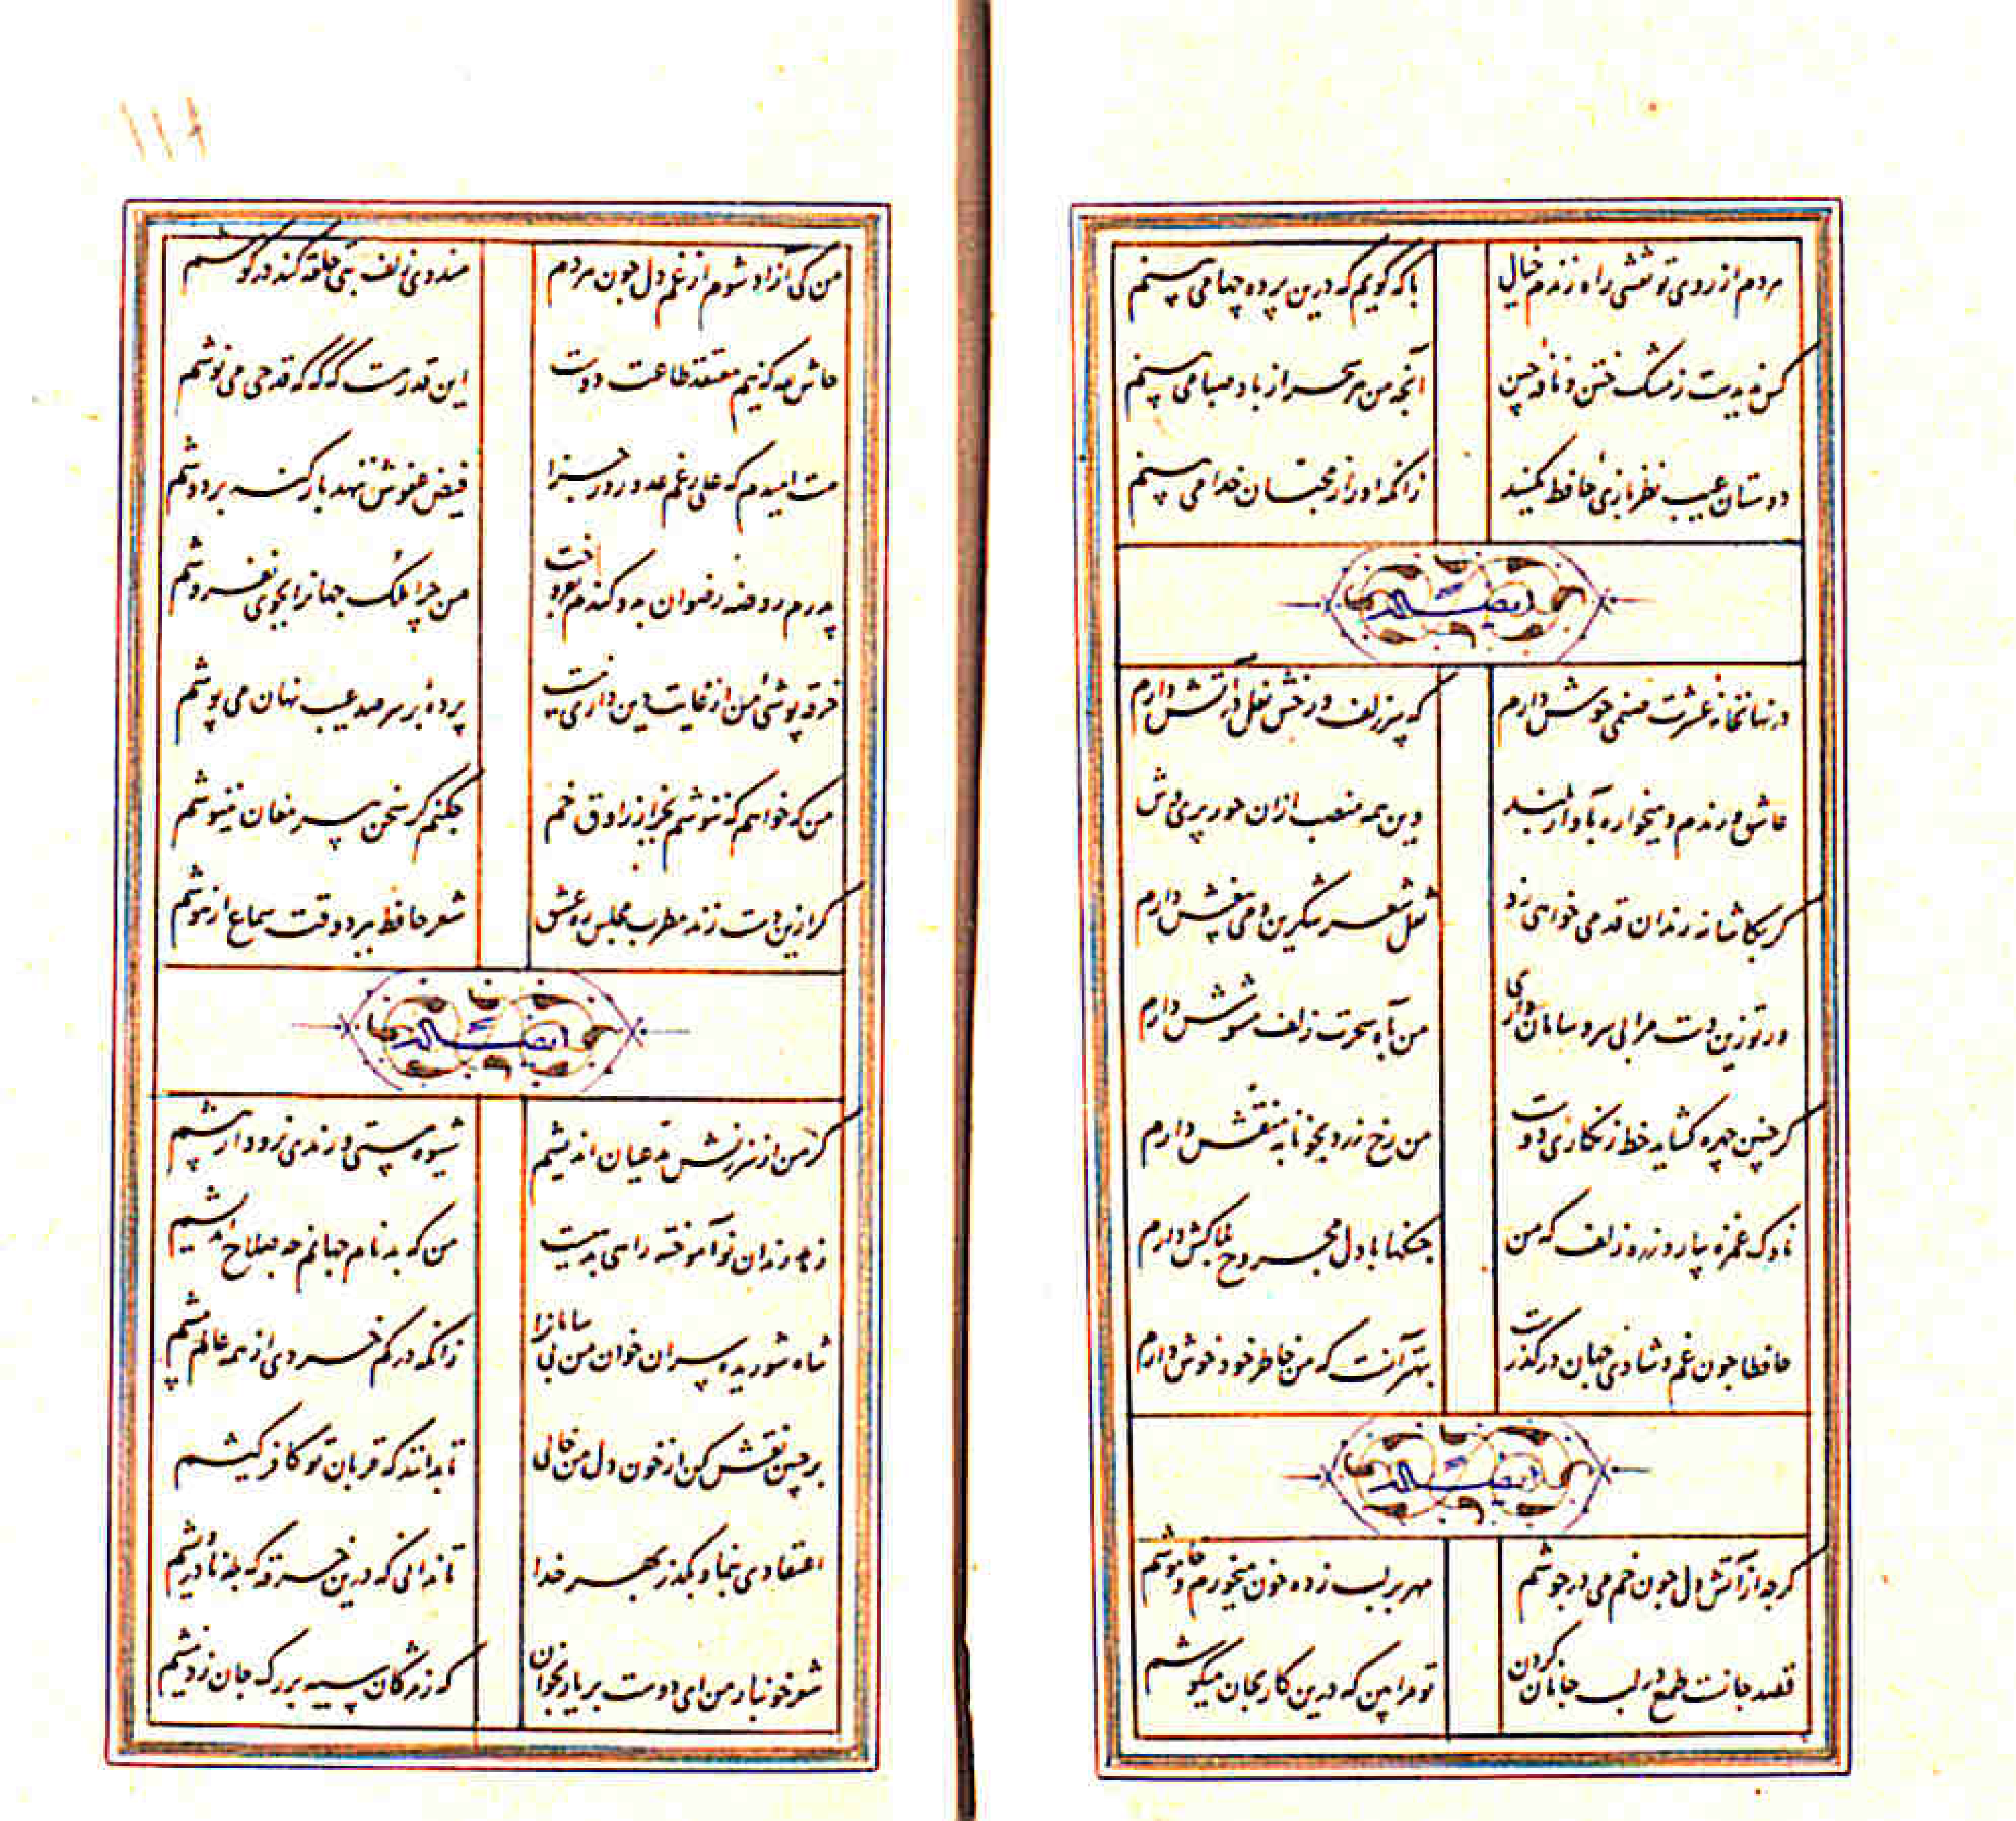 مردم از روی تو نقشی راه زندم خیال
با که گویم که درین پرده چها می بینم
کس ندیدست ز مشک ختن و نافه چین
آنچه من هر سحر از باد صبا می بینم
دوستان عیب نظربازی حافظ مکنید
زانکه او را ز محبان خدا می بینم
ایضاً له
در نهانخانه عشرت صنمی خوش دارم
که سر زلف و رخش نعل در آتش دارم
عاشق و رندم و میخواره بآواز بلند
وین همه منصب ازان حور پری وش دارم
گر بکاشانه رندان قدمی خواهی زد
نقل شعر شکرین و می بیغش دارم
ور تو زین دست مرا بی سر و سامان داری
من بآه سحرت زلف مشوش دارم
گر چنین چهره گشاید خط زنگاری دوست
من رخ زرد بخونابه منقش دارم
ناوک غمزه بیار و زره زلف که من
جنگها با دل مجروح بلاکش دارم
حافظا چون غم و شادی جهان در گذرست
بهتر آنست که من خاطر خود خوش دارم
ایضاً له
گرچه از آتش دل چون خم می در جوشم
مهر بر لب زده خون میخورم و خاموشم
قصد جانست طمع در لب جانان کردن
تو مرا بین که درین کار بجان میکوشم
۱۱۶
من کی آزاد شوم از غم دل چون مردم
هندوی زلف بتی حلقه کند در گوشم
حاش لله که نیم معتقد طاعت دوست
این قدر هست که گه گه قدحی می نوشم
هست امیدم که علی رغم عدو روز جزا
فیض عفوش ننهد بار گنه بر دوشم
پدرم روضه رضوان بدو گندم بفروخت
من چرا ملک جهانرا بجوی نفروشم
خرقه پوشی من از غایت دین داری نیست
پرده بر سر صد عیب نهان می پوشم
من که خواهم که ننوشم بجز از راوق خم
چکنم گر سخن پیر مغان ننیوشم
گر ازین دست زند مطرب مجلس ره عشق
شعر حافظ ببرد وقت سماع از هوشم
ایضاً له
گر من از سرزنش مدعیان اندیشم
شیوه مستی و رندی نرود از پیشم
زهد رندان نوآموخته راهی بدهیست
من که بدنام جهانم چه صلاح اندیشم
شاه شوریده سران خوان من بی سامانرا
زانکه در کم خردی از همه عالم بیشم
بر جبین نقش کن از خون دل من خالی
تا بدانند که قربان تو کافر کیشم
اعتقادی بنما و بگذر بهر خدا
تا ندانی که درین خرقه که چه نادرویشم
شعر خونبار من ای دوست بر یار بخوان
که ز مژگان سیه بر رگ جان زد نیشم